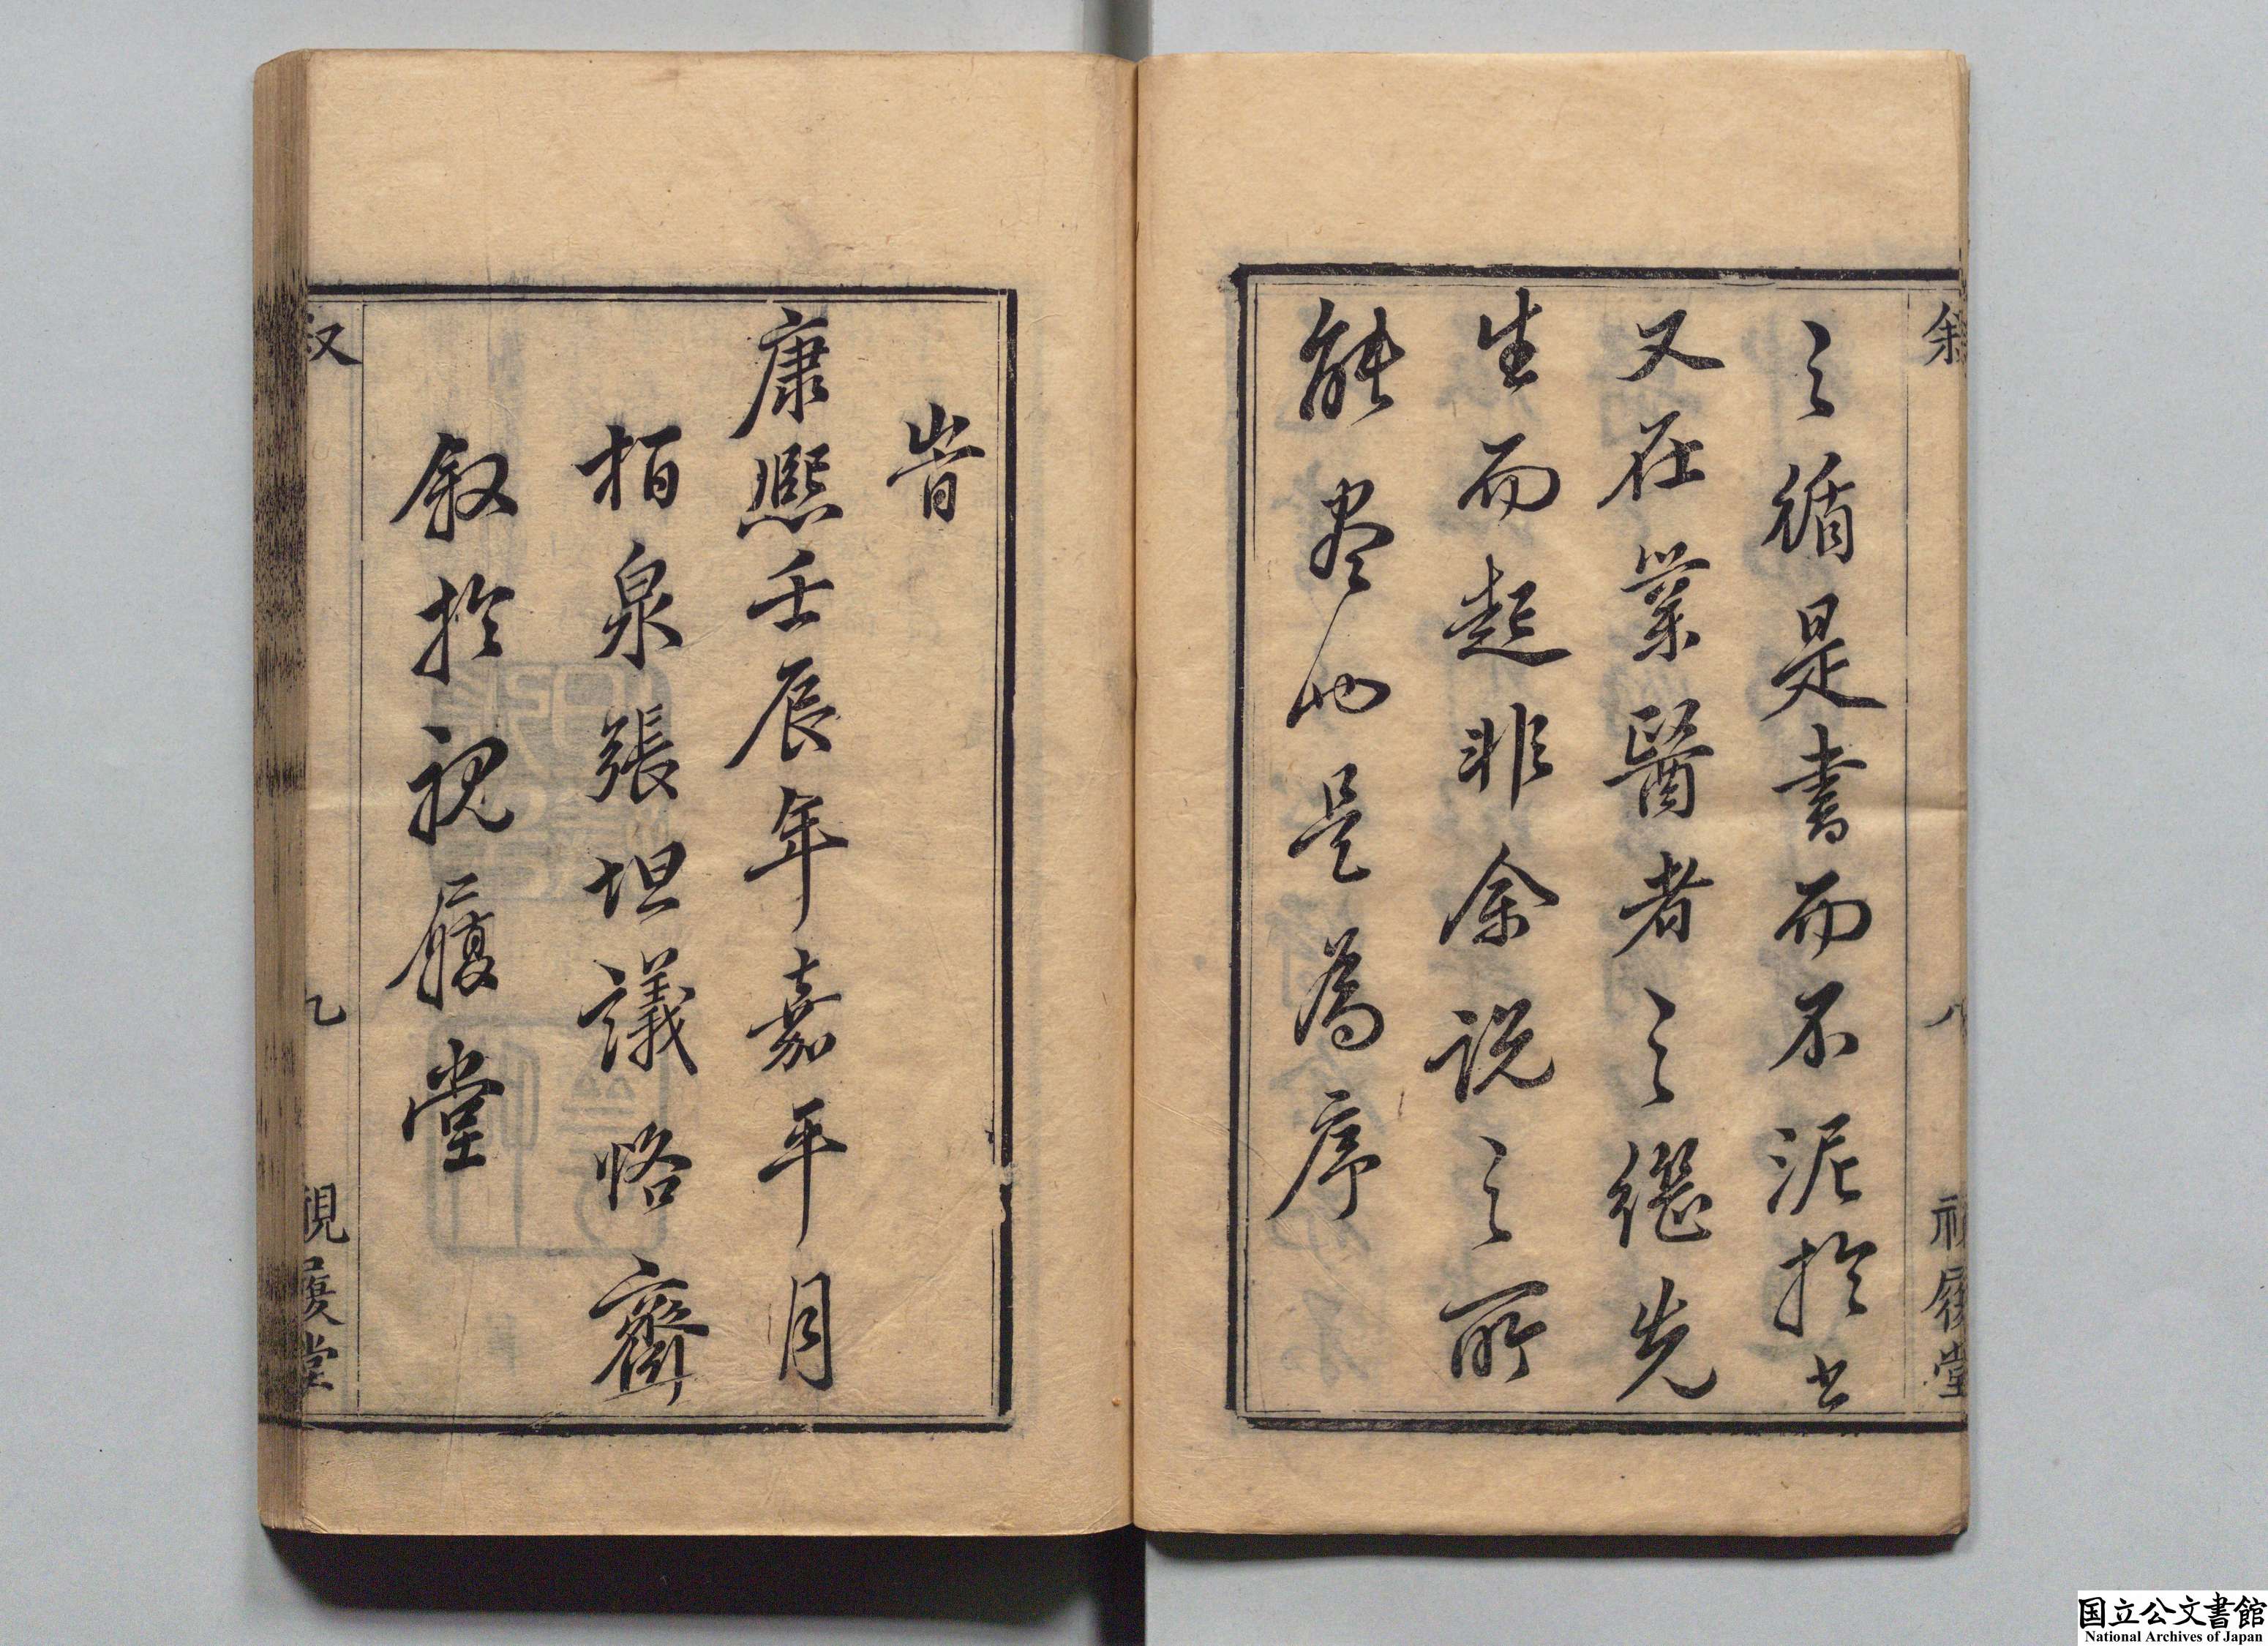 叙
八
視履堂
之循是書而不泥於書
又在業醫者之繼先
生而起非余説之所
能盡也是為序
旹
康熙壬辰年嘉平月
栢泉張坦議恪齋
叙於視履堂
叙
九
視履堂
国立公文書館
National Archives of Japan